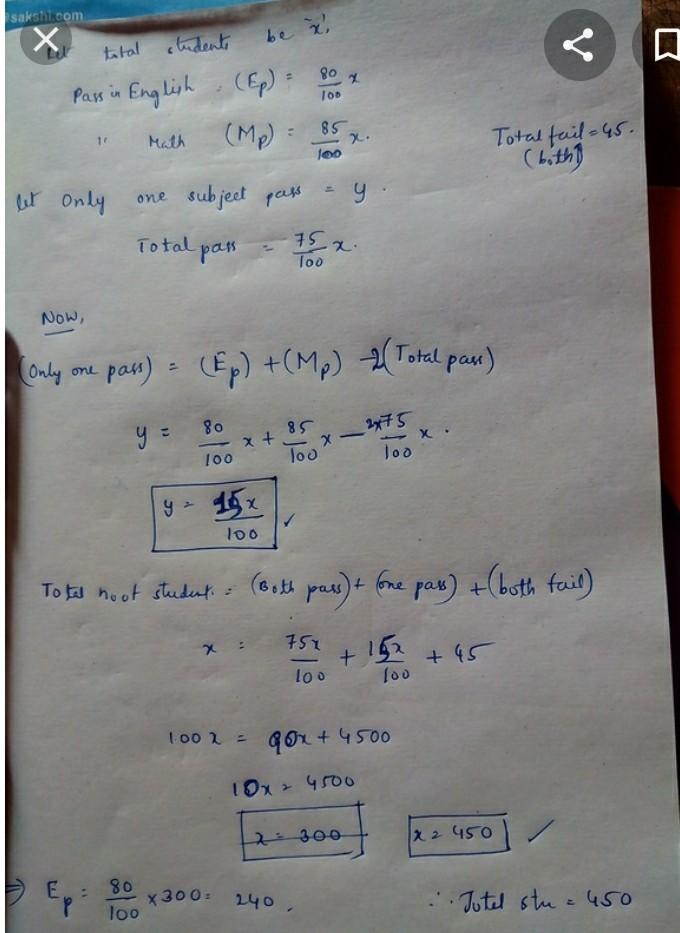 sakshi.com
Let total students be 'x',
Pass in English = (Ep) = 80/100 x
" Math (Mp) = 85/100 x.
Total fail = 45.
(both)
let Only one subject pass = y.
Total pass = 75/100 x.
Now,
(Only one pass) = (Ep) + (Mp) - 2(Total pass)
y = 80/100 x + 85/100 x - 2x75/100 x.
y = 15x/100 ✓
Total no of student. = (Both pass) + (one pass) + (both fail)
x = 75x/100 + 15x/100 + 45
100x = 90x + 4500
10x = 4500
x = 300 x = 450 ✓
⇒ Ep = 80/100 x 300 = 240. ∴ Total stu = 450